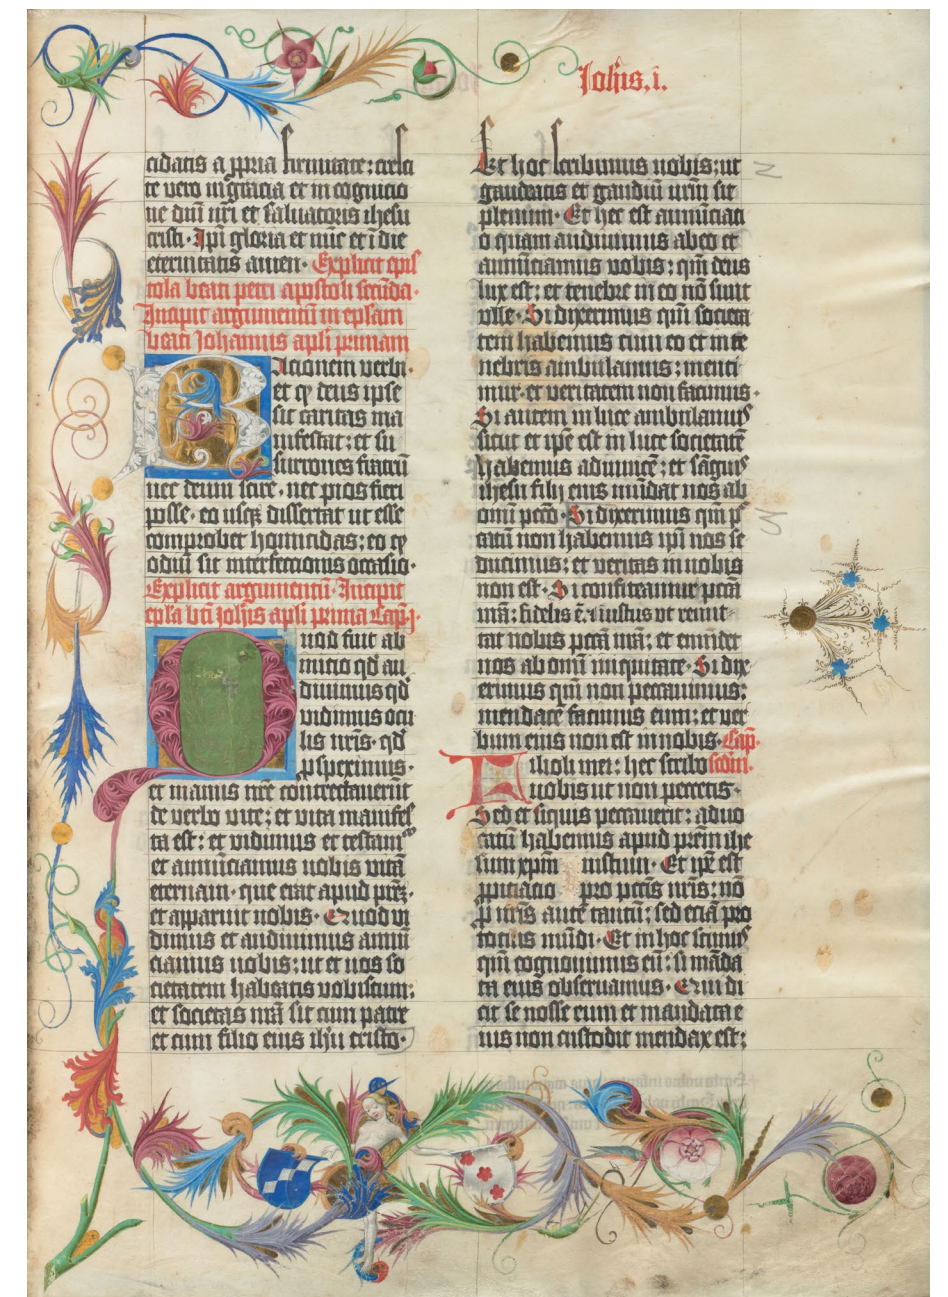 Joh̄is, i.
cidatis a ꝓpria firmitate: cresci
te vero in gracia et in cognicio
ne dn̄i nr̄i et saluatoris ihesu
cristi· Ipi̅ gloria et nūc et ī die
eternitatis amen· Explicit epis
tola beati petri apostoli secūda·
Incipit argumentū in epl̄am
beati Johannis apl̄i primam
Racionem verbi·
et ꝙ deus ipse
sit caritas ma
nifestat: et su
surrones fratrū
nec deum scire· nec pios fieri
posse· eo usqꝫ dissertat ut esse
comprobet homicidas: eo ꝙ
odiū sit interfectionis occasio·
Explicit argumentū· Incipit
epl̄a bt̄i ioh̄is apl̄i prima Cap̄·j·
Quod fuit ab
inicio qd̄ au
diuimus qd̄
vidimus ocu
lis nr̄is· qd̄
ꝓspeximus·
et manus nr̄e contrectauerūt
de verbo vite: et vita manifes
ta est: et vidimus et testam̄
et annūciamus uobis vitā
eternam· que erat apud pr̄eꝫ·
et apparuit nobis· Quod vi
dimus et audiuimus annū
ciamus uobis: ut et uos so
cietatem habeatis vobiscum:
et societas nr̄a sit cum patre
et cum filio eius ih̄u cristo·
Et hoc scribimus uobis: ut
gaudeatis et gaudiū ur̄m sit
plenum· Et hec est annūciati
o quam audiuimus ab eo et
annūciamus vobis: qm̄ deus
lux est: et tenebre in eo nō sunt
ulle· Si dixerimus qm̄ societa
tem habemus cum eo et in te
nebris ambulamus: menti
mur· et veritatem non facimus·
Si autem in luce ambulamus
sicut et ipe̅ est in luce societatē
habemus aduicē: et sāguis
ihesu filij eius mūdat nos ab
omi̅ pctō· Si dixerimus qm̄ p̄
catū non habemus ipi̅ nos se
ducimus: et veritas in uobis
non est· Si confiteamur pctā
nr̄a: fidelis ē· ⁊ iustus ut remit
tat nobis pctā nr̄a: et emūdet
nos ab omi̅ iniquitate· Si dix
erimus qm̄ non peccauimus:
mendacē facimus eum: et ver
bum eius non est in nobis· Cap̄·
Filioli mei: hec scribo scdm̄·
uobis ut non peccetis·
Sed et siquis peccauerit: aduo
catū habemus apud pr̄em ihe
sum xpm̄ iustum· Et ipe̅ est
ꝓpiciacio pro pctīs nr̄is: nō
ꝓ nr̄is autē tantū: sed eciā pro
tocius mūdi· Et in hoc scimus
qm̄ cognouimus eū: si māda
ta eius obseruamus· Qui di
cit se nosse eum et mandata e
ius non custodit mendax est: